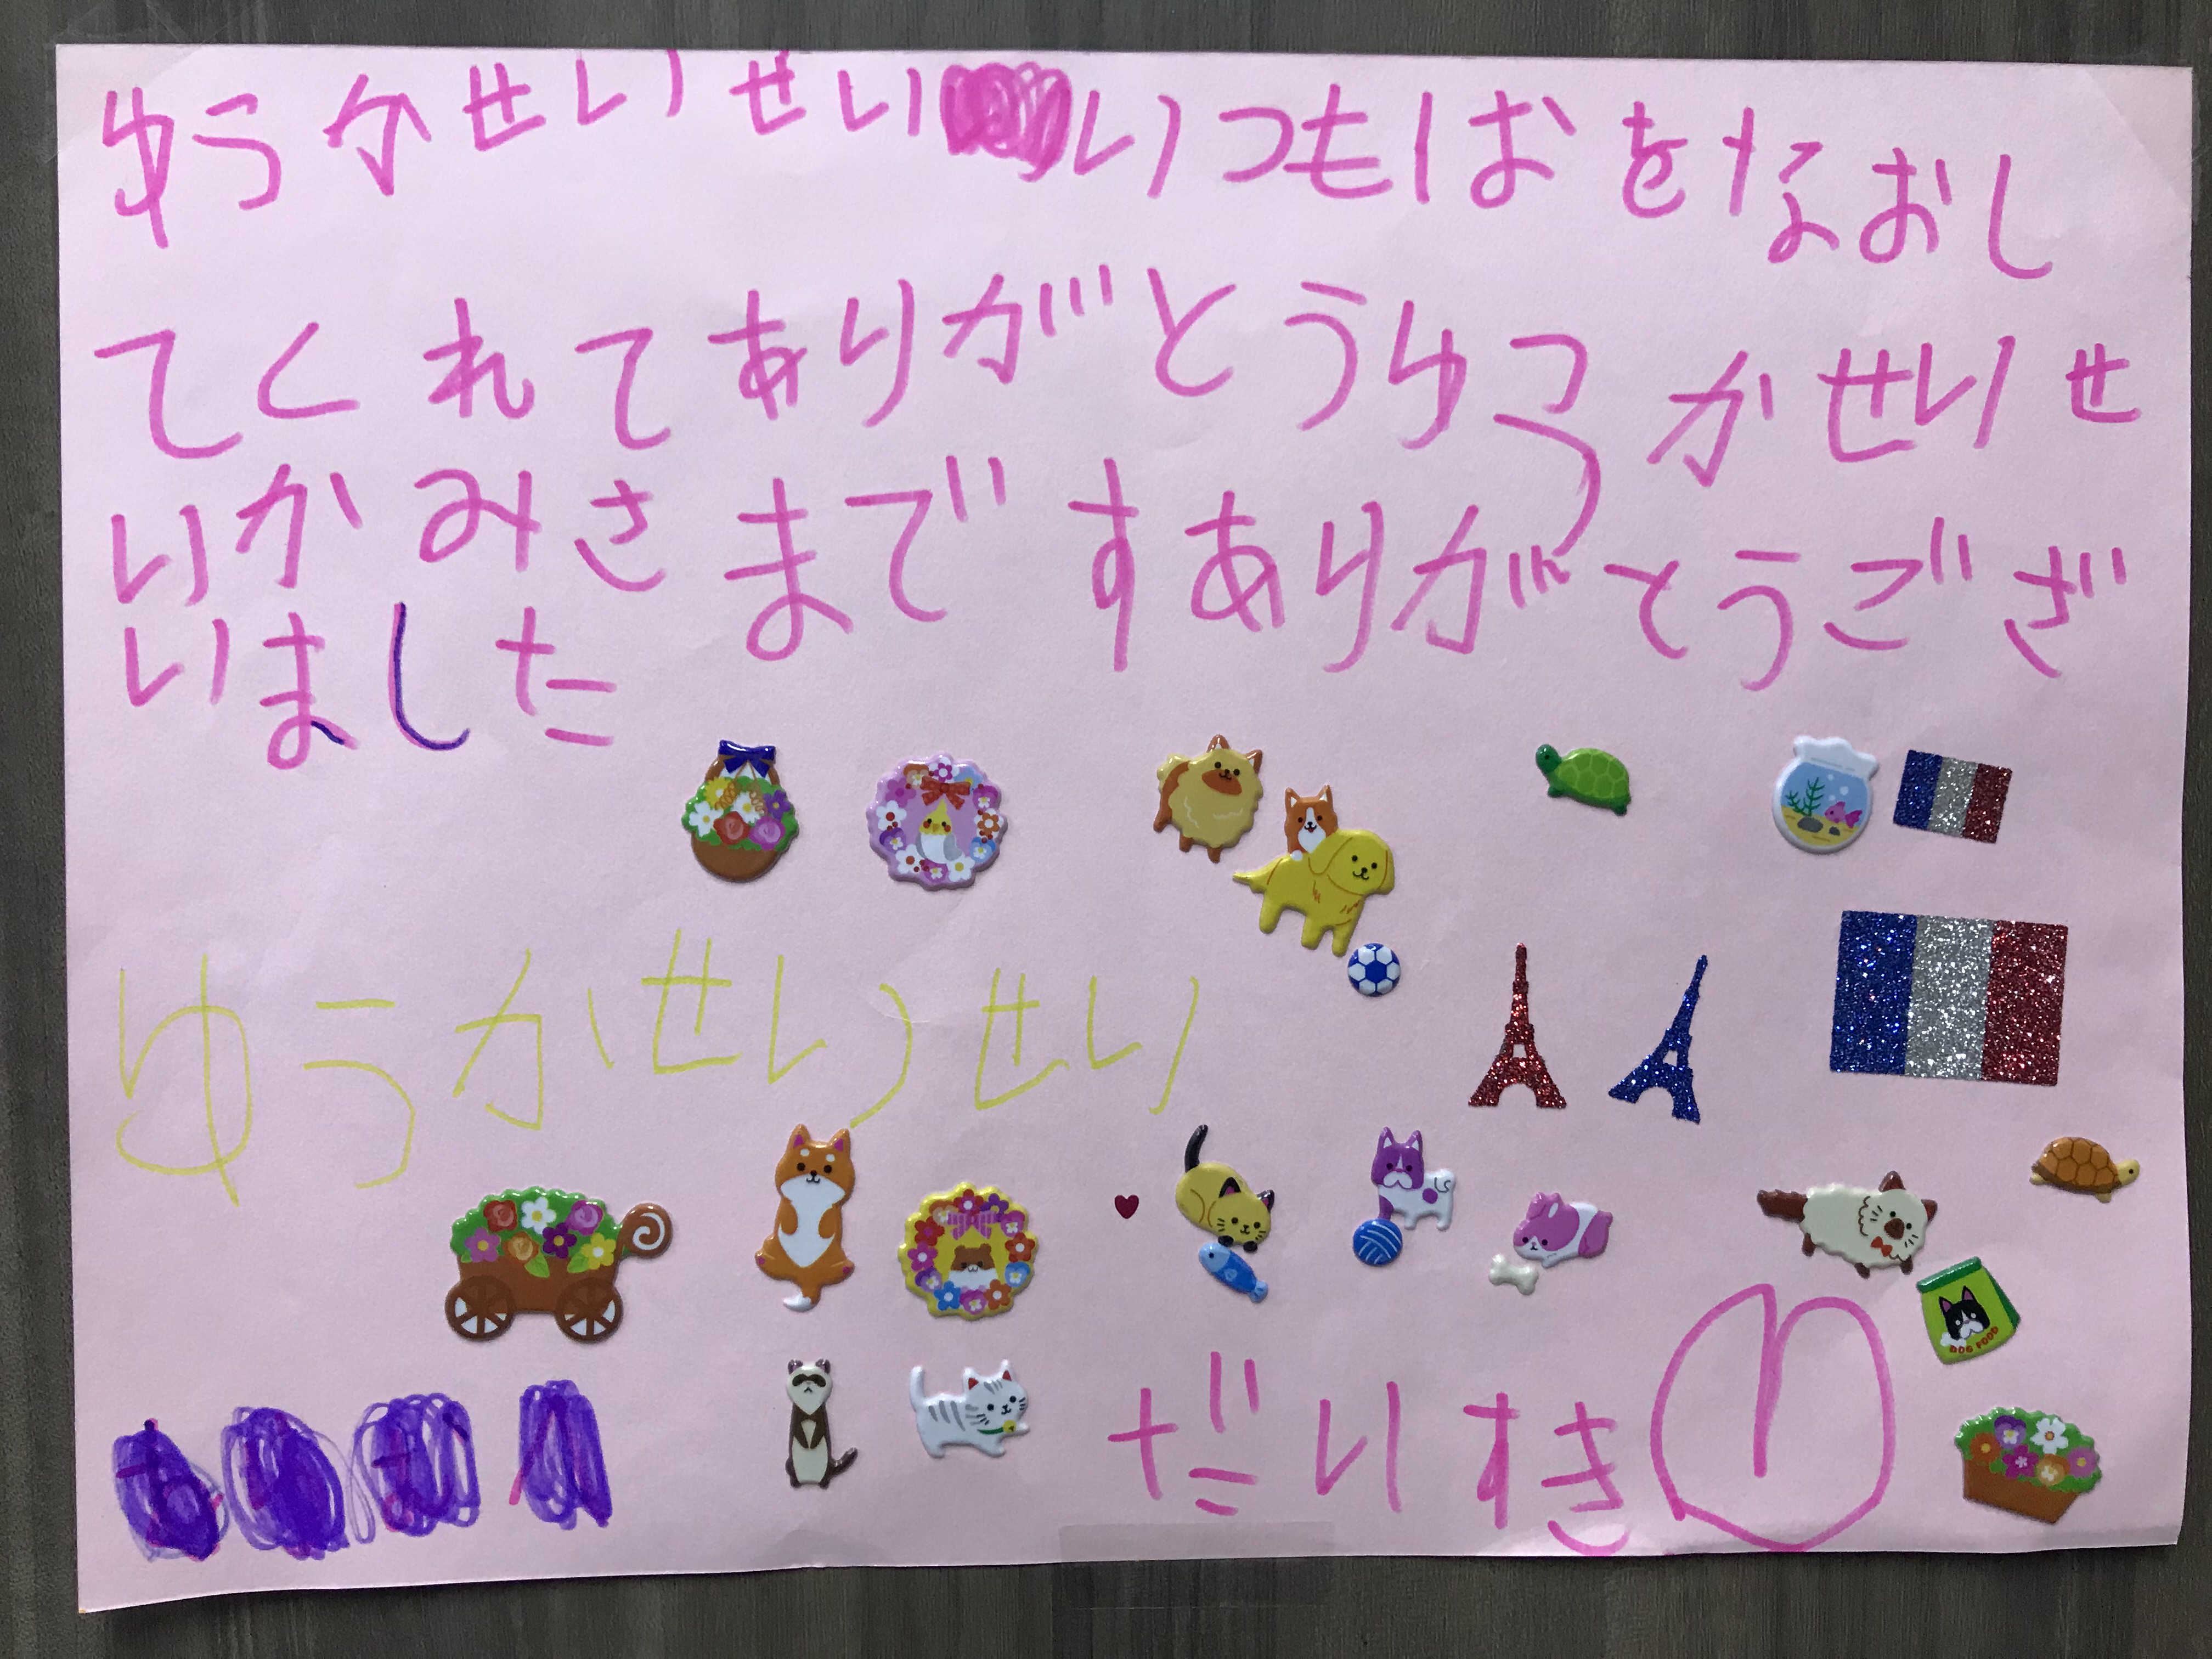 ゆうかせいせいいつもはをなおし
てくれてありがとうゆうかせいせ
いかみさまですありがとうござ
いました
ゆうかせいせい
だいすき
DOG FOOD